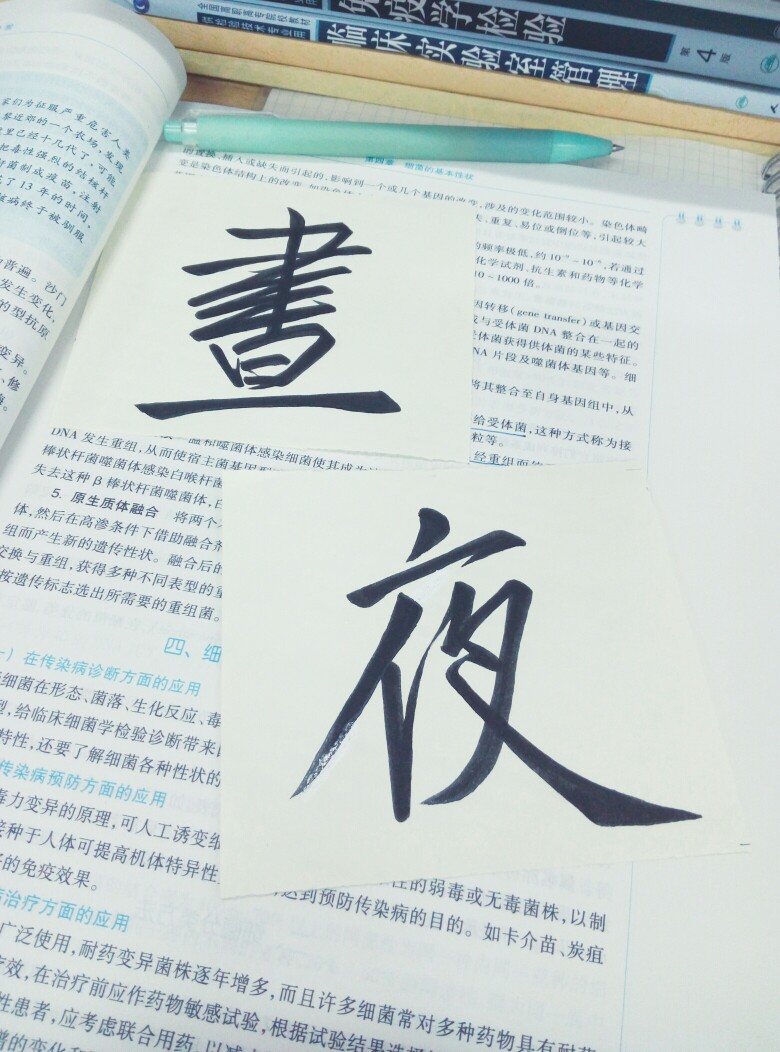 免疫学检验
全国高职高专院校教材
供检验技术专业用
临床实验室管理
第4版
家们为征服严重危害人类
黎近郊的一个农场，发现
里已经十几代了，可能
把毒性强烈的结核杆
菌制成疫苗，注射
了13年的时间，
核病终于被驯服
普遍。沙门
发生变化，
的型抗原
变异。
、修
第四章 物质的基本性状
的置换、插入或缺失而引起的，影响到一个或几个基因的改变，涉及的变化范围较小。染色体畸
变是染色体结构上的改变
失、重复、易位或倒位等，引起较大
的频率极低，约10⁻⁶~10⁻⁹，若通过
化学试剂、抗生素和药物等化学
10~1000倍。
因转移(gene transfer)或基因交
或与受体菌DNA整合在一起的
受体菌获得供体菌的某些特征。
DNA片段及噬菌体基因等。细
将其整合至自身基因组中，从
给受体菌，这种方式称为接
粒等。
经重组而
晝
夜
温和噬菌体感染细菌使其成为
DNA发生重组，从而使宿主菌基因型
棒状杆菌噬菌体感染白喉杆菌
失去这种β棒状杆菌噬菌体，白
5. 原生质体融合 将两个
体，然后在高渗条件下借助融合剂
组而产生新的遗传性状。融合后的
交换与重组，获得多种不同表型的重
按遗传标志选出所需要的重组菌。
四、细
一）在传染病诊断方面的应用
细菌在形态、菌落、生化反应、毒
型，给临床细菌学检验诊断带来
特性，还要了解细菌各种性状的
传染病预防方面的应用
毒力变异的原理，可人工诱变细
性的弱毒或无毒菌株，以制
接种于人体可提高机体特异性
达到预防传染病的目的。如卡介苗、炭疽
的免疫效果。
治疗方面的应用
广泛使用，耐药变异菌株逐年增多，而且许多细菌常对多种药物具有耐药
疗效，在治疗前应作药物敏感试验，根据试验结果选择
性患者，应考虑联合用药，以减
谱的变化和